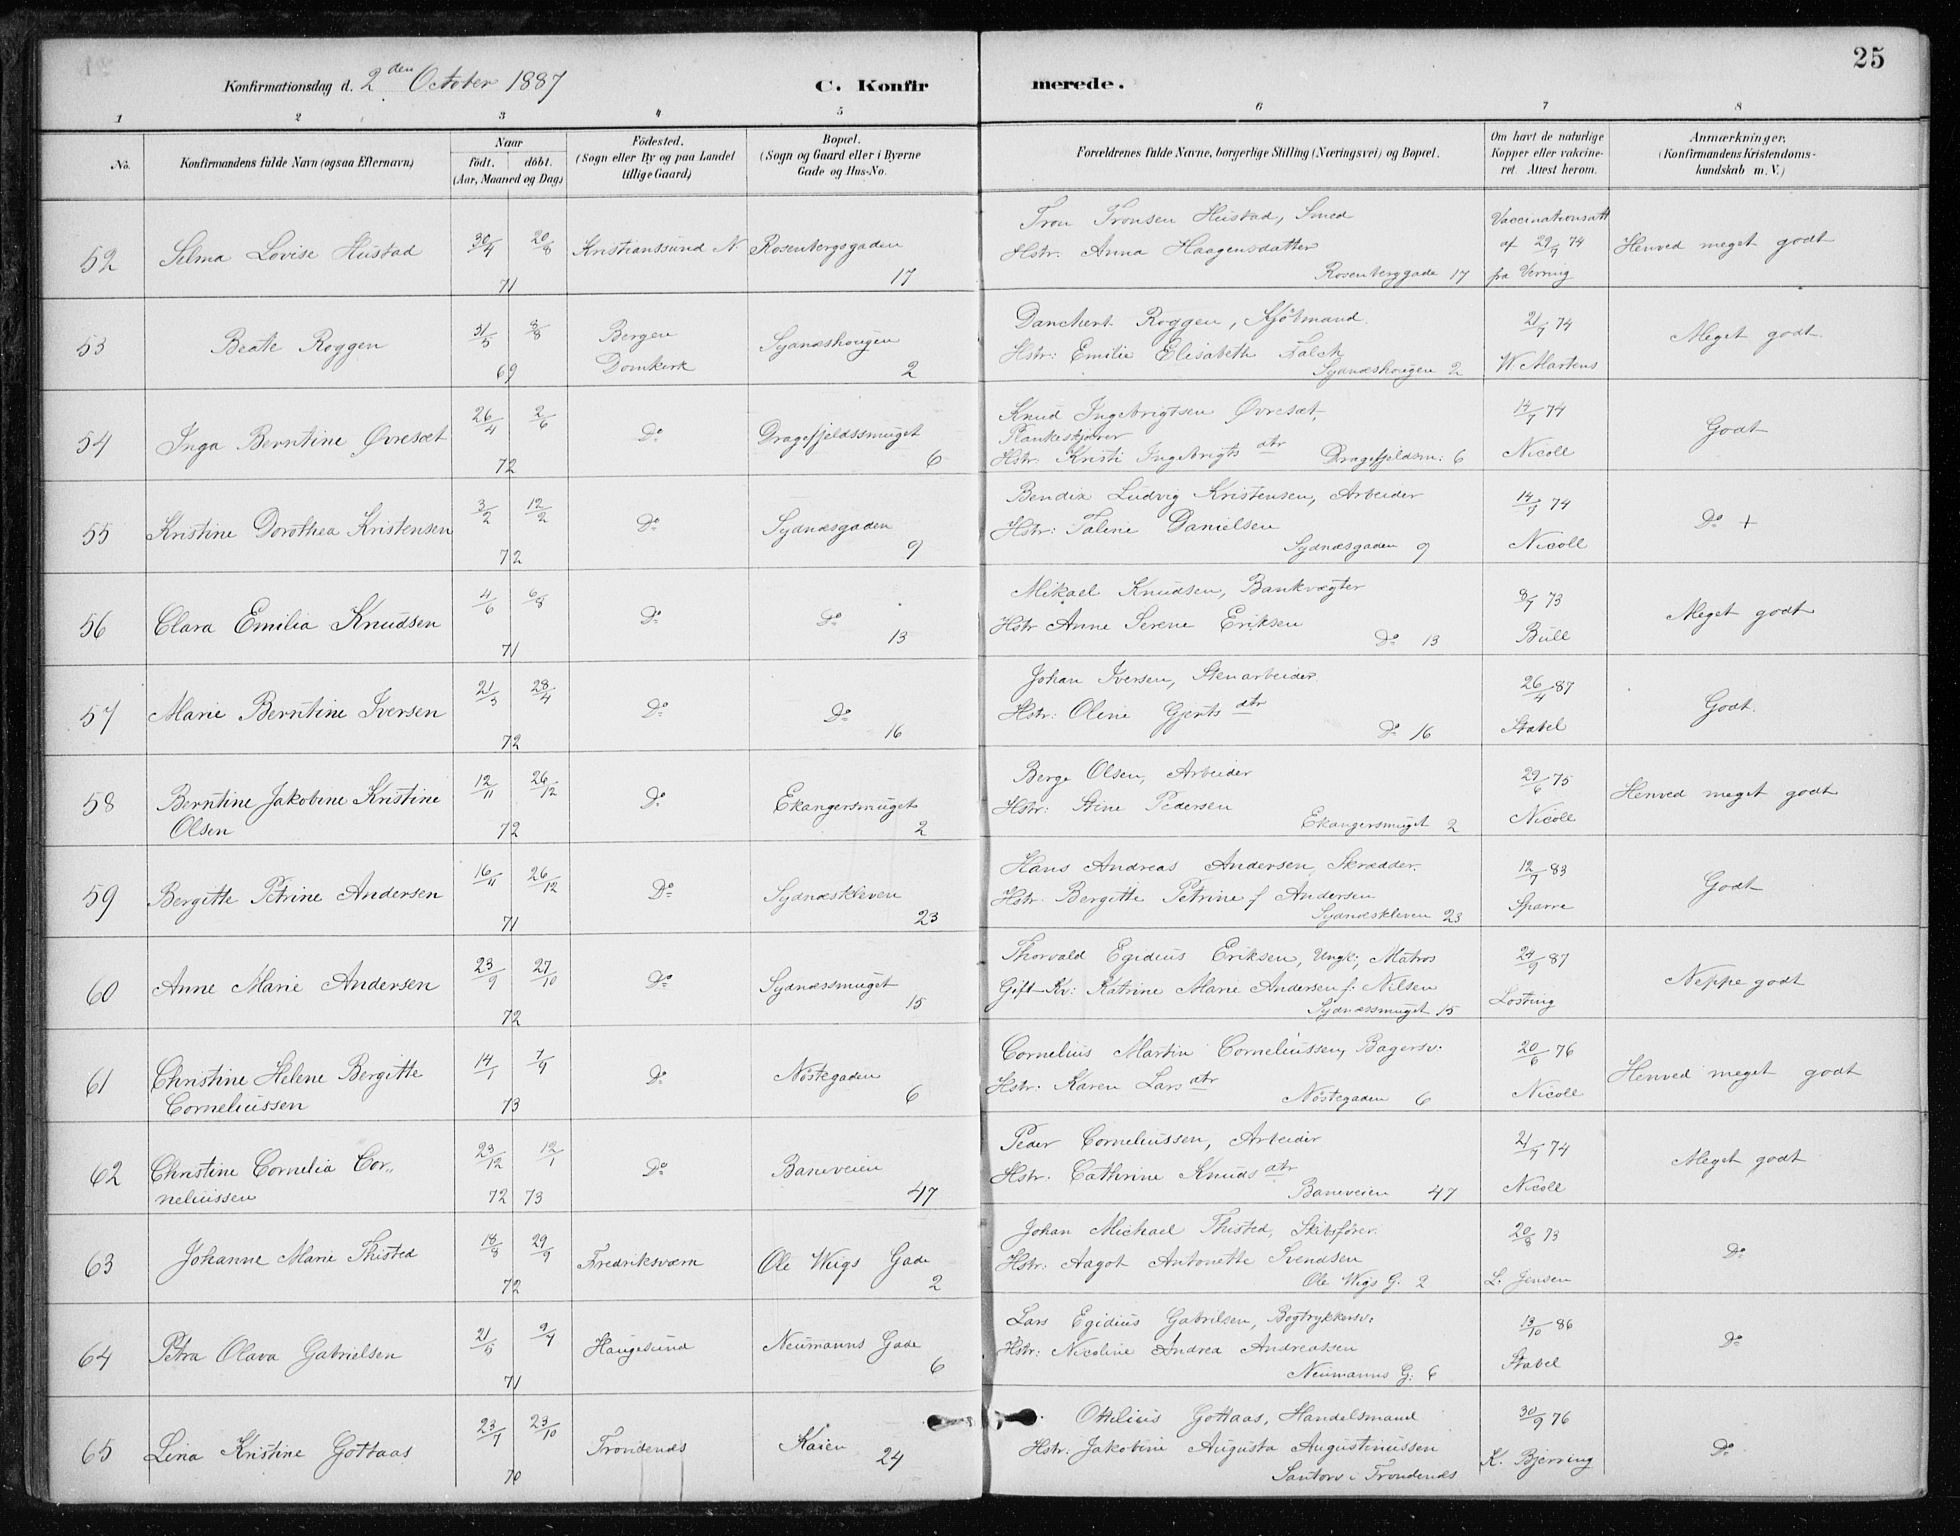 25
Konfirmationsdag d. 2den October 1887
C. Konfirmerede.
1 2 3 4 5 6 7 8
No.
Konfirmandens fulde Navn (ogsaa Efternavn)
Naar
födt. döbt.
(Aar, Maaned og Dag)
Födested.
(Sogn eller By og paa Landet
tillige Gaard)
Bopæl.
(Sogn og Gaard eller i Byerne
Gade og Hus-No.
Forældrenes fulde Navne, borgerlige Stilling (Næringsvei) og Bopæl.
Om havt de naturlige
Kopper eller vakcine-
ret. Attest herom.
Anmærkninger,
(Konfirmandens Kristendoms-
kundskab m. V.)
52 Selma Lovise Hustad 30/4 20/8 71 Kristianssund N. Rosenbergsgaden 17
Tron Tronsen Hustad, Smed
Hstr. Anna Haagensdatter
Rosenberggade 17
Vaccinationsatt
af 29/7 74
fra Verring
Henved meget godt
53 Beate Roggen 31/5 8/8 69 Bergen Domkirk Sydnæshougen 2
Danchert Roggen, Kjøbmand.
Hstr: Emilie Elisabeth Falch
Sydnæshougen 2
21/7 74
W. Martens
Meget godt.
54 Inga Berntine Øvresæt 26/4 2/6 72 Do Dragefjeldssmuget 6
Knud Ingebrigtsen Øvresæt
Plankeskjører
Hstr: Kristi Ingebrigts dtr Dragefjeldsm: 6
14/7 74
Nicoll
Godt
55 Kristine Dorothea Kristensen 3/2 12/2 72 Do Sydnæsgaden 9
Bendix Ludvig Kristensen, Arbeider
Hstr: Taline Danielsen
Sydnæsgaden 9
14/7 74
Nicoll
Do +
56 Clara Emilia Knudsen 4/6 6/8 71 Do Do 13
Mikael Knudsen, Bankvægter
Hstr Anne Serene Eriksen
Do 13
8/7 73
Bull
Meget godt
57 Marie Berntine Iversen 21/3 28/4 72 Do Do 16
Johan Iversen, Stenarbeider
Hstr: Oline Gjerts dtr
Do 16
26/4 87
Stabel
Godt.
58 Berntine Jakobine Kristine
Olsen 12/11 26/12 72 Do Ekangersmuget 2
Berge Olsen, Arbeider
Hstr: Stine Pedersen
Ekangersmuget 2
29/6 75
Nicoll
Henved meget godt
59 Bergitte Petrine Andersen 16/11 26/12 71 Do Sydnæskleven 23
Hans Andreas Andersen, Skrædder.
Hstr. Bergitte Petrine f Andersen
Sydnæskleven 23
12/7 83
Sparre
Godt
60 Anne Marie Andersen 23/9 27/10 72 Do Sydnæssmuget 15
Thorvald Egidius Eriksen, Ungk:, Matros
Gift Kv: Katrine Marie Andersen f: Nilsen
Sydnæssmuget 15
24/9 87
Losting
Neppe godt
61 Christine Helene Bergitte
Corneliussen 14/1 7/9 73 Do Nöstegaden 6
Cornelius Martin Corneliussen, Bagersv.
Hstr. Karen Lars dtr
Nöstegaden 6
20/6 76
Nicoll
Henved meget godt
62 Christine Cornelia Cor„
neliussen 23/12 72 12/1 73 Do Baneveien 47
Peder Corneliussen, Arbeider
Hstr. Cathrine Knuds dtr
Baneveien 47
21/7 74
Nicoll
Meget godt
63 Johanne Marie Thisted 18/8 29/9 72 Fredriksværn Ole Wigs Gade 2
Johan Michael Thisted, Skibsfører.
Hstr: Aagot Antonette Svendsen
Ole Wigs G. 2
20/8 73
L. Jensen
Do
64 Petra Olava Gabrielsen 21/5 9/7 71 Haugesund Neumanns Gade 6
Lars Egidius Gabrilsen, Bogtrykkersv:
Hstr: Nicoline Andrea Andreassen
Neumanns G: 6
13/10 86
Stabel
Do
65 Lina Kristine Gottaas 23/7 23/10 70 Trondenæs Kaien 24
Ottilius Gottaas, Handelsmand
Hstr: Jakobine Augusta Augustinussen
Santorv i Trondenæs
30/9 76
K. Bjerring
Do